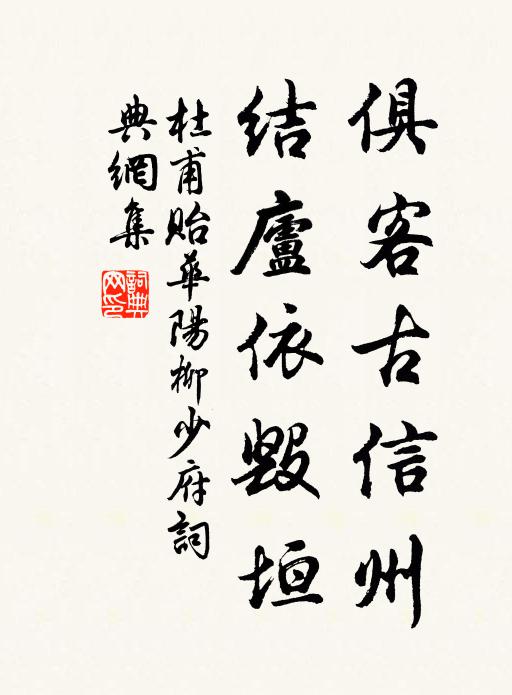 俱客古信州
結廬依毀垣
杜甫貽華陽柳少府詞
典網集
詞典
网印